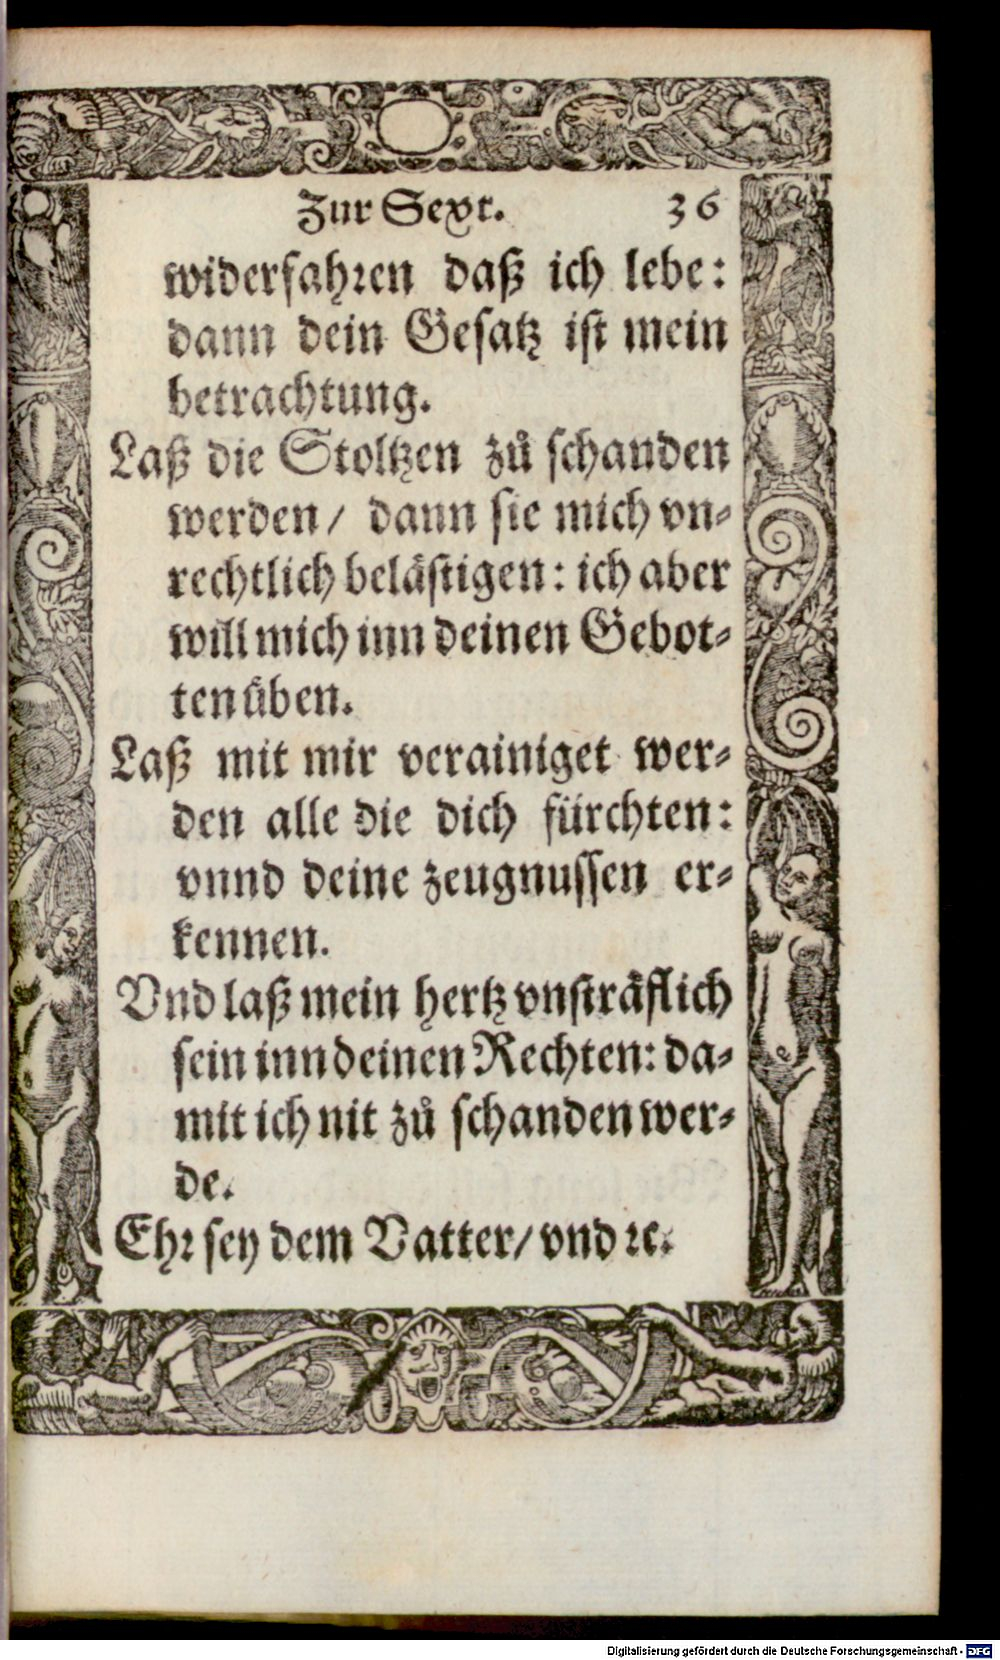 Zur Sext. 36
widerfahren daß ich lebe:
dann dein Gesatz ist mein
betrachtung.
Laß die Stoltzen zů schanden
werden / dann sie mich vn-
rechtlich belästigen: ich aber
will mich inn deinen Gebot-
ten üben.
Laß mit mir verainiget wer-
den alle die dich fürchten:
vnnd deine zeugnussen er-
kennen.
Vnd laß mein hertz vnsträflich
sein inn deinen Rechten: da-
mit ich nit zů schanden wer-
de.
Ehr sey dem Vatter / vnd ꝛc.
Digitalisierung gefördert durch die Deutsche Forschungsgemeinschaft - DFG